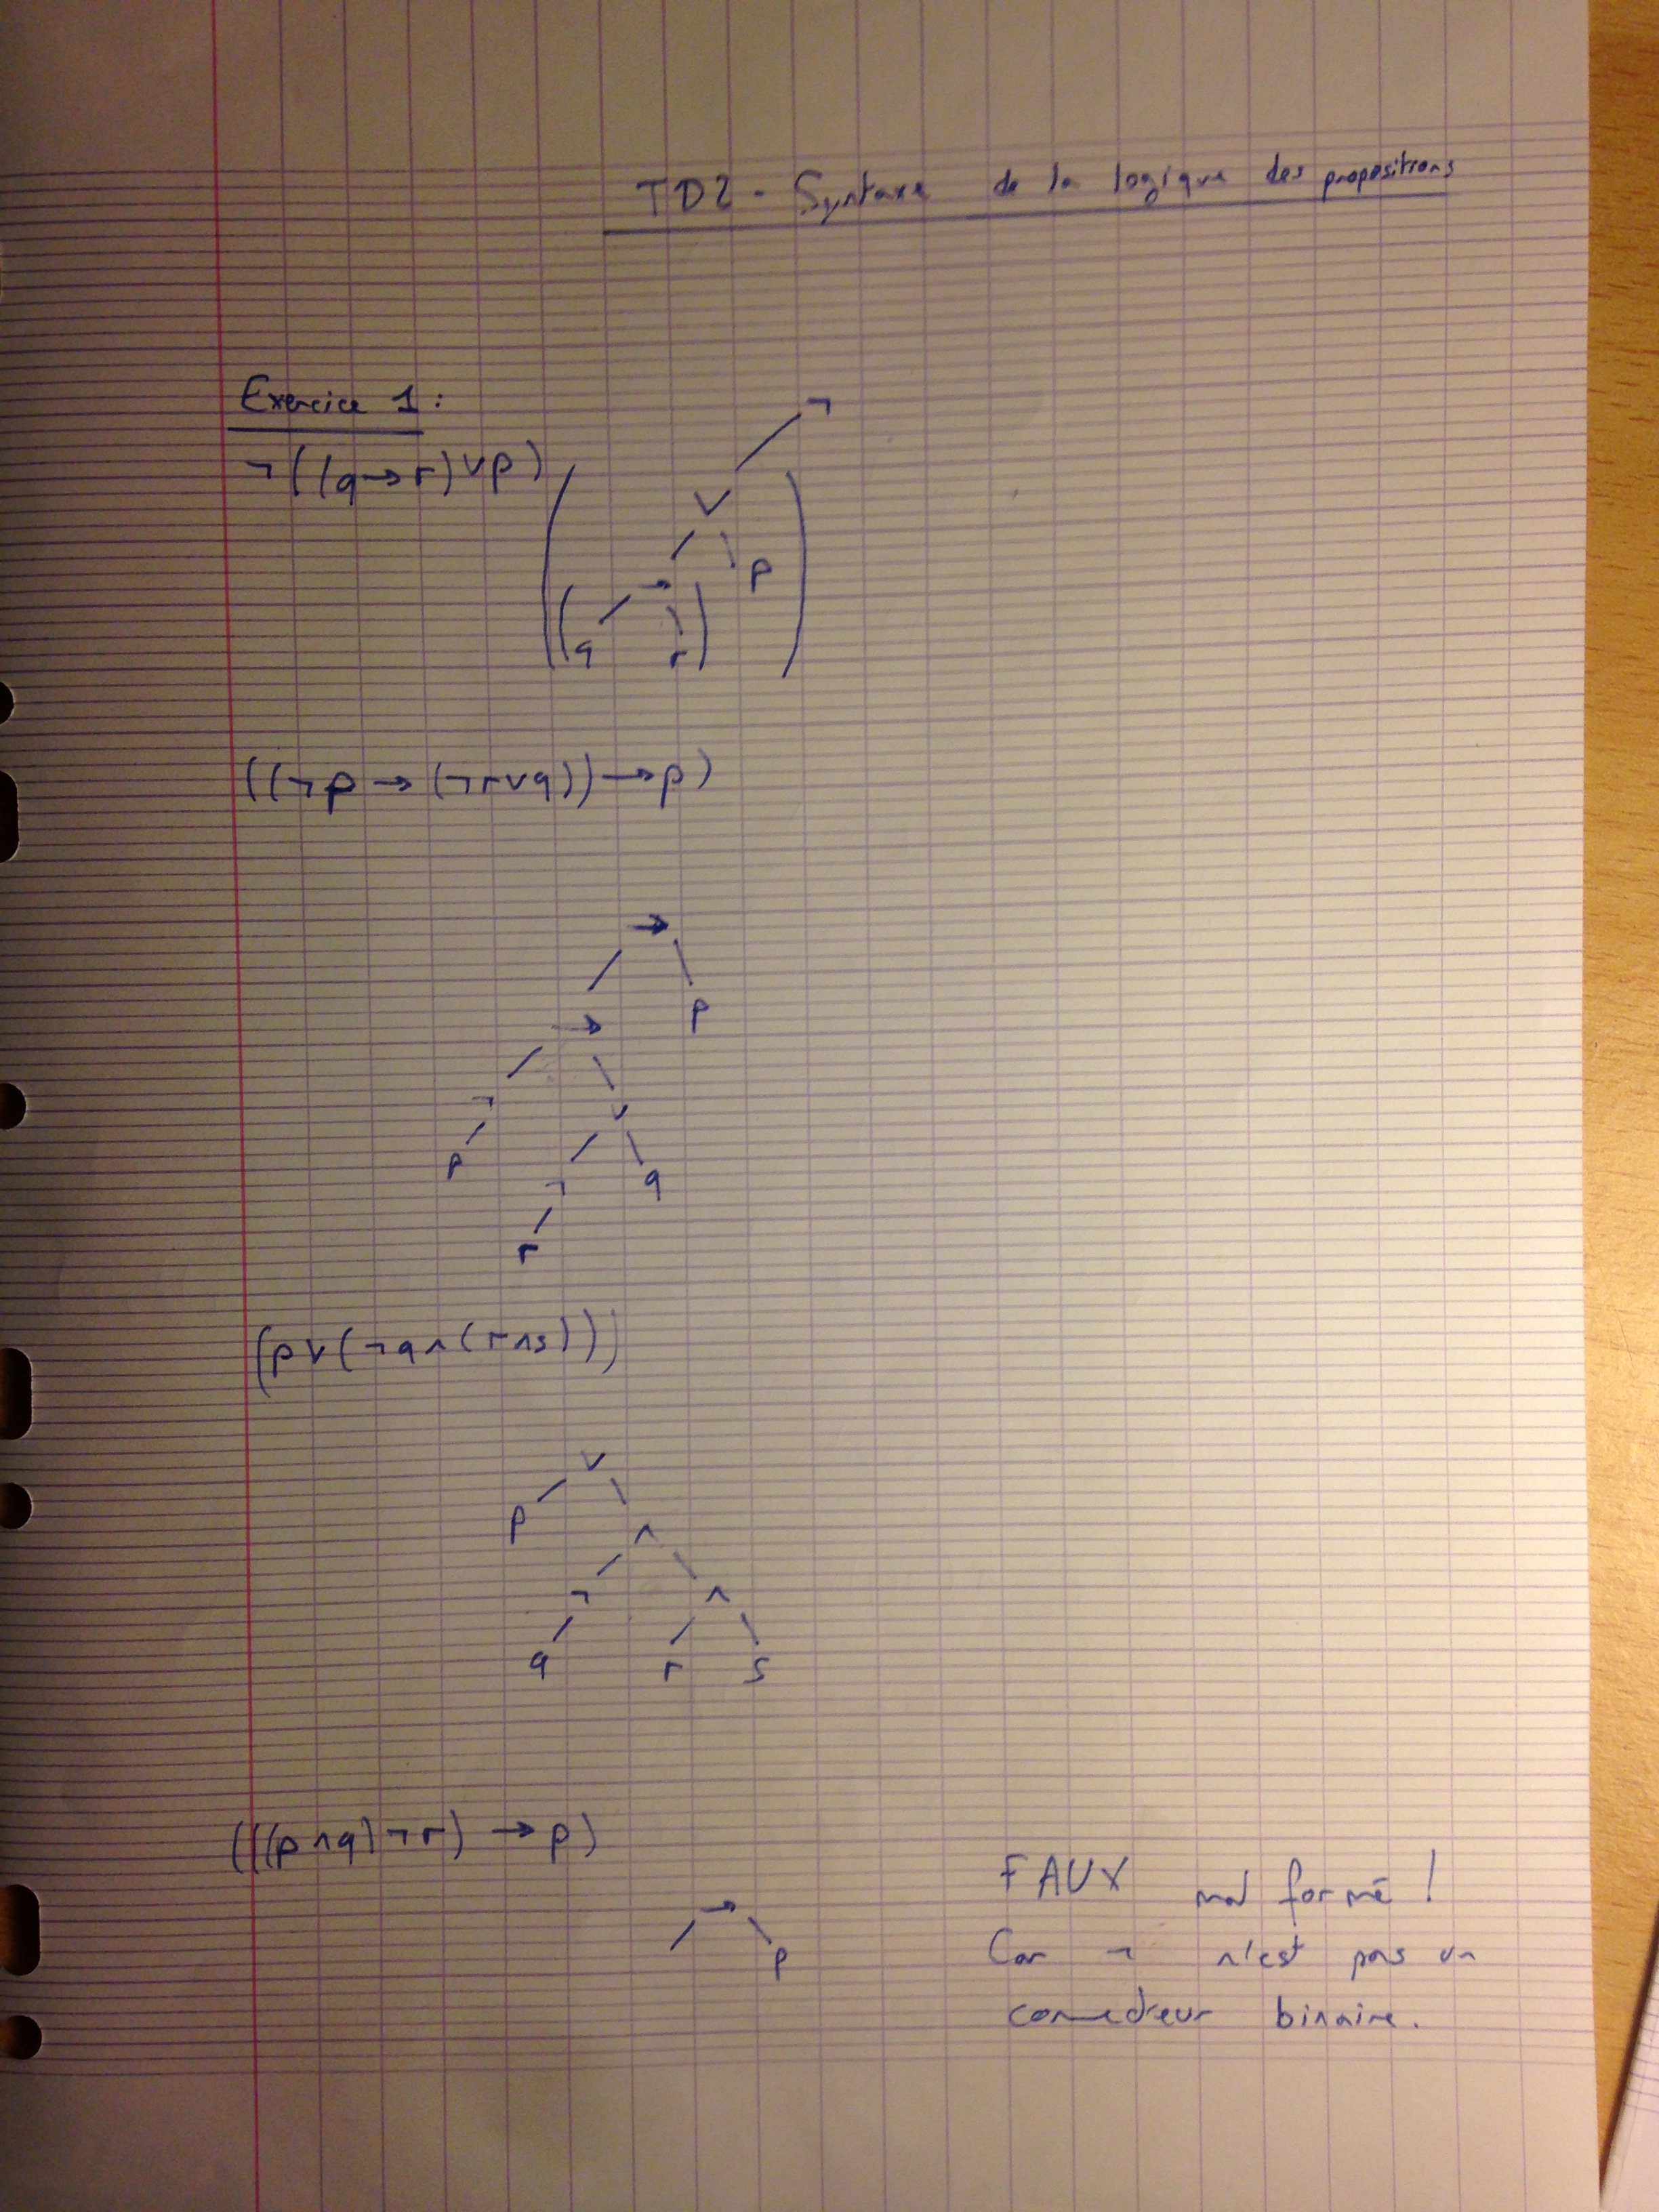 TD2 - Syntaxe de la logique des propositions
Exercice 1 :
¬((q→r)∨p)
¬
∨
→ p
q r
((¬p→(¬r∨q))→p)
→
→ p
¬ ∨
p ¬ q
r
(p∨(¬q∧(r∧s)))
∨
p ∧
¬ ∧
q r s
(((p∧q)¬r)→p)
→
p
FAUX mal formé !
Car ¬ n'est pas un
connecteur binaire.